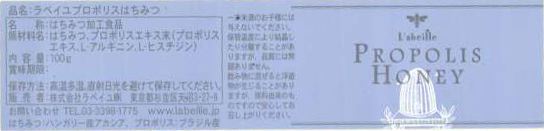 品名:ラベイユプロポリスはちみつ
名　称:はちみつ加工食品
原材料名:はちみつ、プロポリスエキス末(プロポリス
エキス、L-アルギニン、L-ヒスチジン)
内容量:100g
賞味期限:
保存方法:高温多湿、直射日光を避けて保存してください。
販売者:株式会社ラベイユ 東京都杉並区天沼3-27-8
お問い合わせ TEL.03-3398-1775 www.labeille.jp
はちみつ:ハンガリー産アカシア、プロポリス:ブラジル産
一歳未満のお子様には
与えないでください。
保管温度により結晶し
たり分離することがあ
りますが、品質には問
題ありません。
飲み物に混ぜると浮遊
物が生じることがあり
ますが、原料由来のも
のですので安心してお
召し上がりください。
L'abeille
PROPOLIS
HONEY